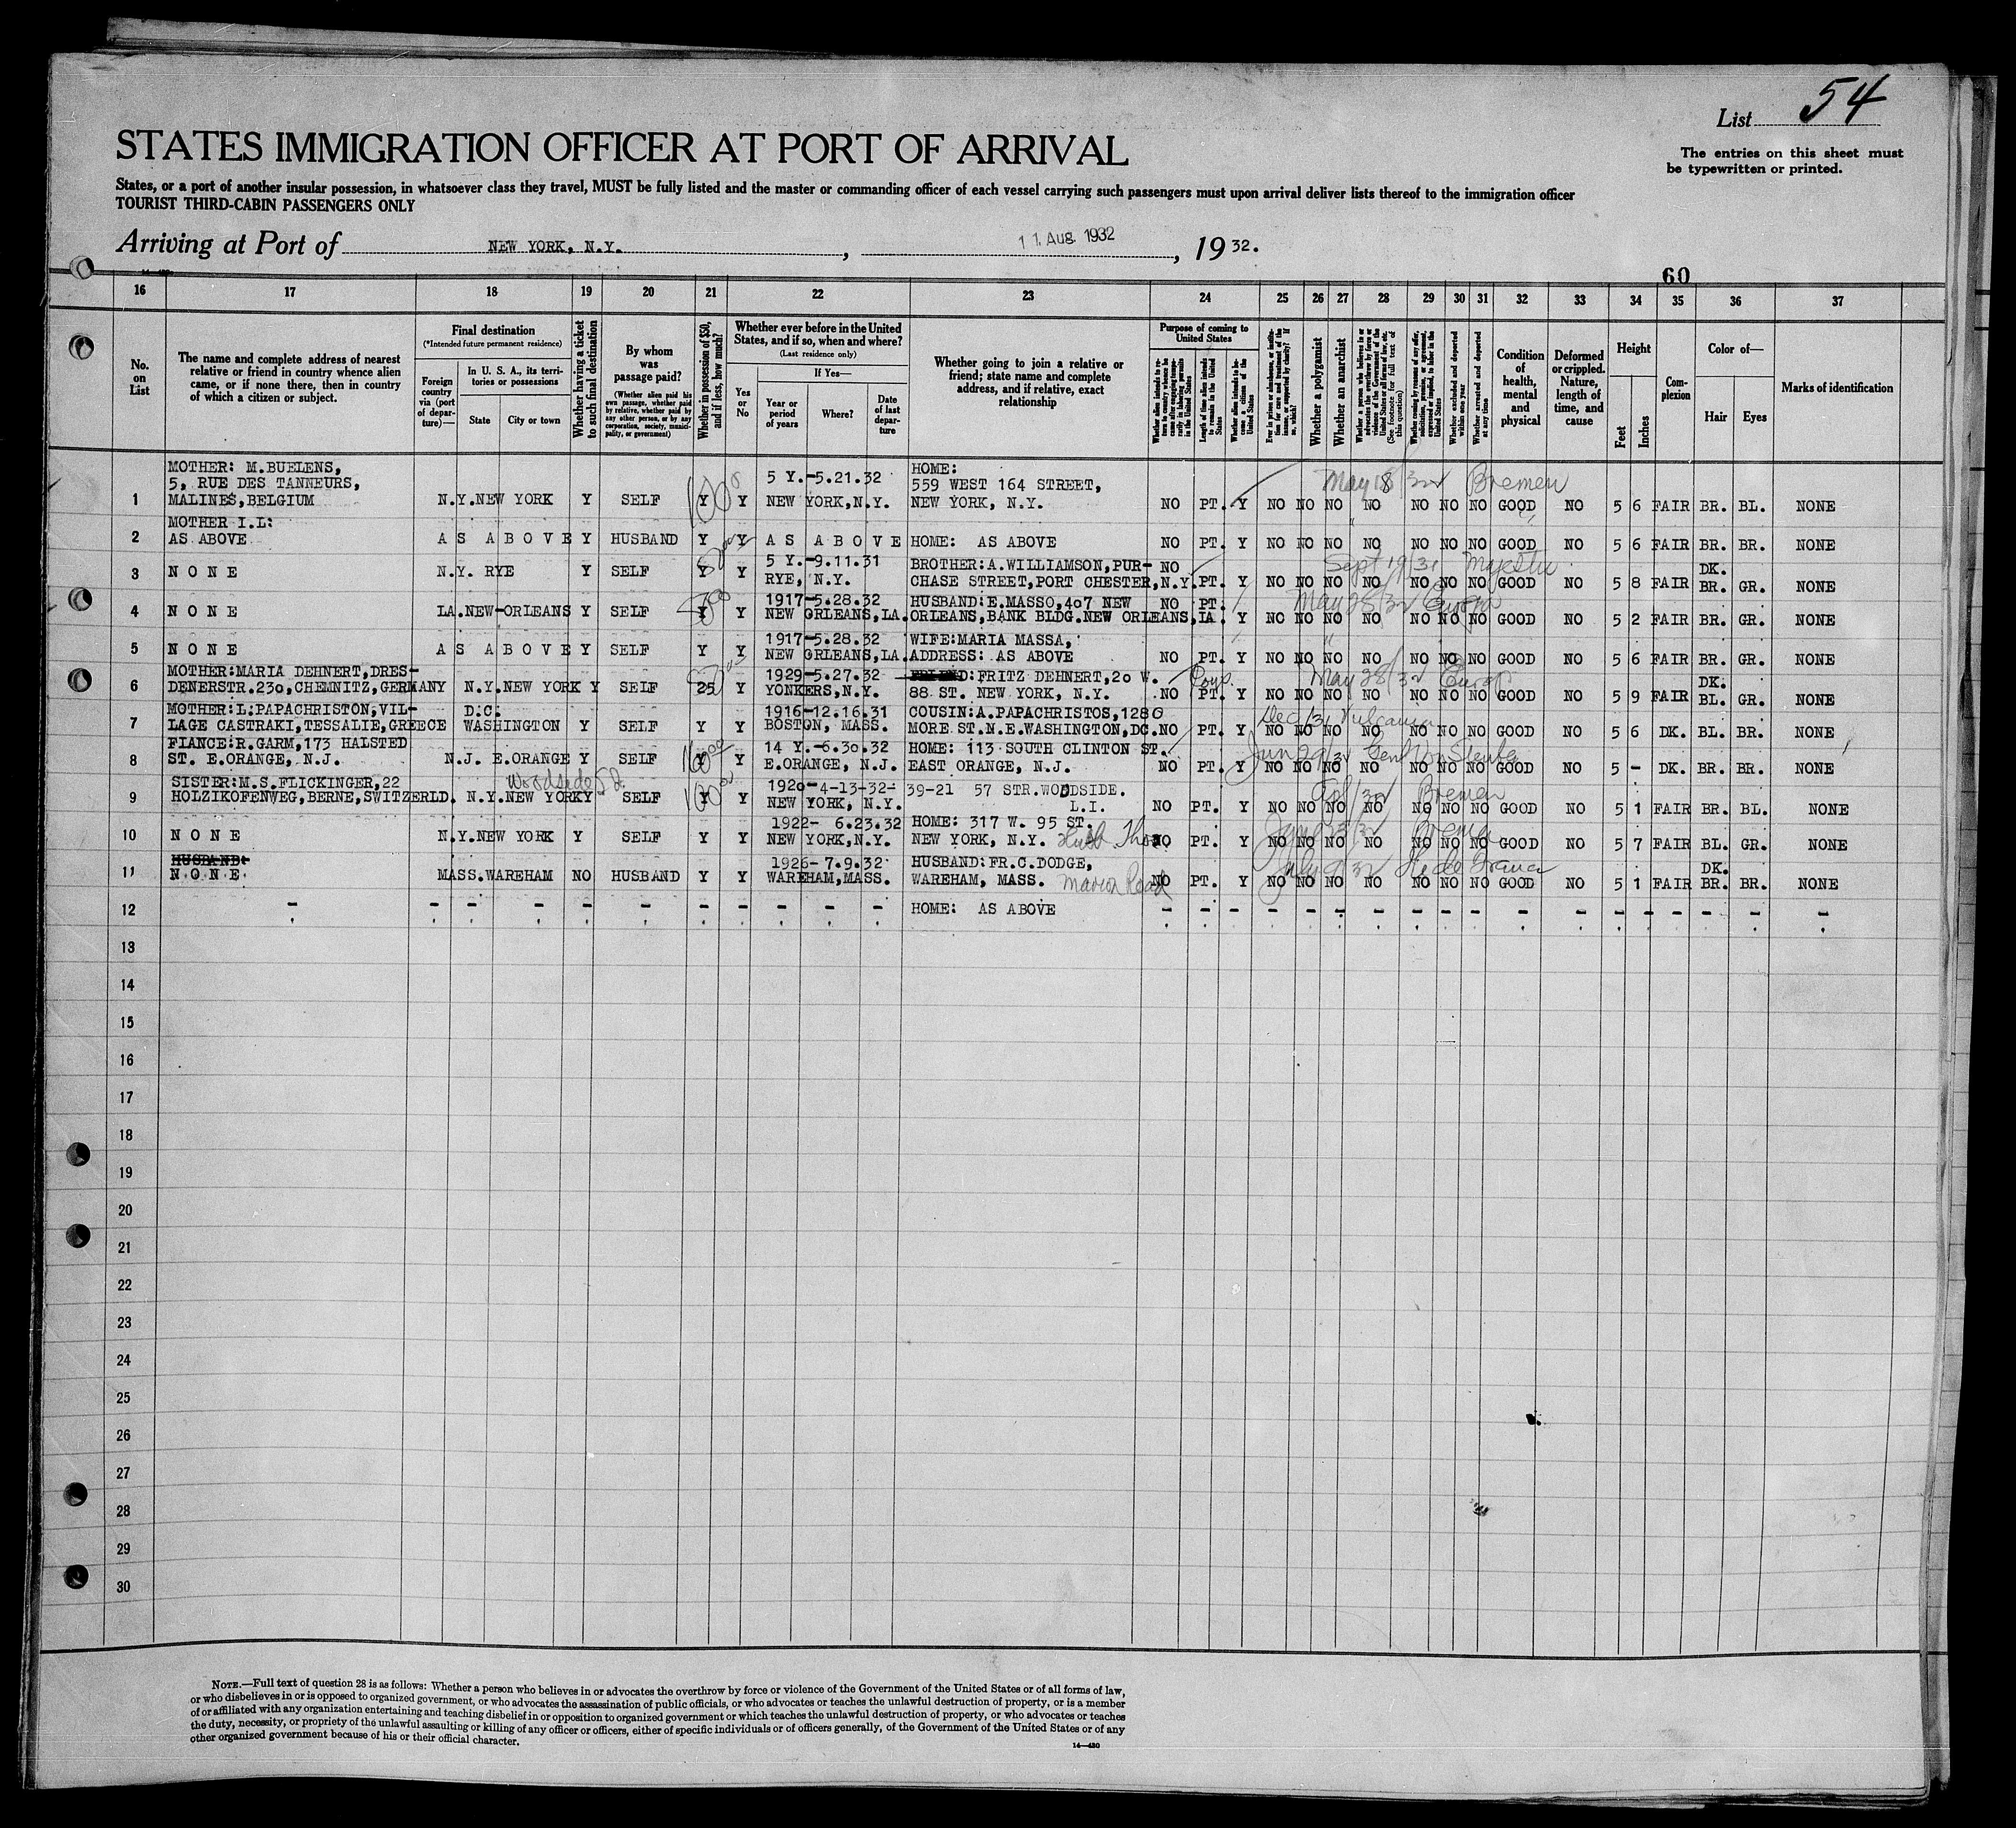 List 54
STATES IMMIGRATION OFFICER AT PORT OF ARRIVAL
The entries on this sheet must
be typewritten or printed.
States, or a port of another insular possession, in whatsoever class they travel, MUST be fully listed and the master or commanding officer of each vessel carrying such passengers must upon arrival deliver lists thereof to the immigration officer
TOURIST THIRD-CABIN PASSENGERS ONLY
Arriving at Port of NEW YORK, N.Y. , 11 Aug 1932 , 19 32.
60
16 17 18 19 20 21 22 23 24 25 26 27 28 29 30 31 32 33 34 35 36 37
No. on List
The name and complete address of nearest relative or friend in country whence alien came, or if none there, then in country of which a citizen or subject.
Final destination
(*Intended future permanent residence)
Foreign country via (port of departure)—
In U. S. A., its territories or possessions
State City or town
Whether having a ticket to such final destination
By whom was passage paid?
(Whether alien paid his own passage, whether paid by relative, whether paid by any other person, or by any corporation, society, municipality, or government)
Whether in possession of $50, and if less, how much?
Whether ever before in the United States, and if so, when and where?
(Last residence only)
Yes or No
If Yes—
Year or period of years
Where?
Date of last departure
Whether going to join a relative or friend; state name and complete address, and if relative, exact relationship
Purpose of coming to United States
Whether alien intends to return to country whence he came after engaging temporarily in laboring pursuits in the United States
Length of time alien intends to remain in the United States
Whether alien intends to become a citizen of the United States
Ever in prison or almshouse, or institution for care and treatment of the insane, or supported by charity? If so, which?
Whether a polygamist
Whether an anarchist
Whether a person who believes in or advocates the overthrow by force or violence of the Government of the United States or all forms of law, etc. (See footnote for full text of this question)
Whether coming by reason of any offer, solicitation, promise, or agreement, expressed or implied, to labor in the United States
Whether excluded and deported within one year
Whether arrested and deported at any time
Condition of health, mental and physical
Deformed or crippled. Nature, length of time, and cause
Height
Feet Inches
Complexion
Color of—
Hair Eyes
Marks of identification
MOTHER: M.BUELENS, 5 Y.-5.21.32 HOME:
5, RUE DES TANNEURS, 559 WEST 164 STREET, May 18/32 Bremen
1 MALINES,BELGIUM N.Y.NEW YORK Y SELF Y 100 Y NEW YORK,N.Y. NEW YORK, N.Y. NO PT. Y NO NO NO NO NO NO NO GOOD NO 5 6 FAIR BR. BL. NONE
MOTHER I.L:
2 AS ABOVE AS ABOVE Y HUSBAND Y Y AS ABOVE HOME: AS ABOVE NO PT. Y NO NO NO NO NO NO NO GOOD NO 5 6 FAIR BR. BR. NONE
5 Y.-9.11.31 BROTHER:A.WILLIAMSON,PUR- NO Sept 19/31 Majestic DK.
3 NONE N.Y. RYE Y SELF Y Y RYE, N.Y. CHASE STREET,PORT CHESTER,N.Y. PT. Y NO NO NO NO NO NO NO GOOD NO 5 8 FAIR BR. GR. NONE
1917-5.28.32 HUSBAND:E.MASSO,407 NEW NO PT. May 28/32 Europa
4 NONE LA.NEW-ORLEANS Y SELF Y Y NEW ORLEANS,LA. ORLEANS,BANK BLDG.NEW ORLEANS,LA. Y NO NO NO NO NO NO NO GOOD NO 5 2 FAIR BR. GR. NONE
1917-5.28.32 WIFE:MARIA MASSA, "
5 NONE AS ABOVE Y SELF Y Y NEW ORLEANS,LA. ADDRESS: AS ABOVE NO PT. Y NO NO NO NO NO NO NO GOOD NO 5 6 FAIR BR. GR. NONE
MOTHER:MARIA DEHNERT,DRES- 1929-5.27.32 FRIEND:FRITZ DEHNERT,20 W. May 28/32 Europa DK.
6 DENERSTR.230,CHEMNITZ,GERMANY N.Y.NEW YORK Y SELF 25 Y YONKERS,N.Y. 88 ST. NEW YORK, N.Y. NO PT. Y NO NO NO NO NO NO NO GOOD NO 5 9 FAIR BL. GR. NONE
MOTHER:L.PAPACHRISTON,VIL- D.C. 1916-12.16.31 COUSIN:A.PAPACHRISTOS,1280 Dec /31 Vulcania
7 LAGE CASTRAKI,TESSALIE,GREECE WASHINGTON Y SELF Y Y BOSTON, MASS. MORE ST.N.E.WASHINGTON,DC. NO PT. Y NO NO NO NO NO NO NO GOOD NO 5 6 DK. BL. BR. NONE
FIANCE:R.GARM,173 HALSTED 14 Y.-6.30.32 HOME: 113 SOUTH CLINTON ST. Jun 29/32 Genl Von Steuben
8 ST. E.ORANGE, N.J. N.J. E.ORANGE Y SELF Y 160 00 Y E.ORANGE, N.J. EAST ORANGE, N.J. NO PT. Y NO NO NO NO NO NO NO GOOD NO 5 - DK. BR. BR. NONE
SISTER:M.S.FLICKINGER,22 Woodside 1920-4-13-32- 39-21 57 STR.WOODSIDE. Apl /32 Bremen
9 HOLZIKOFENWEG,BERNE,SWITZERLD. N.Y.NEW YORK Y SELF Y 100 Y NEW YORK, N.Y. L.I. NO PT. Y NO NO NO NO NO NO NO GOOD NO 5 1 FAIR BR. BL. NONE
1922- 6.23.32 HOME: 317 W. 95 ST. June 23/32 Bremen
10 NONE N.Y.NEW YORK Y SELF Y Y NEW YORK,N.Y. NEW YORK, N.Y. NO PT. Y NO NO NO NO NO NO NO GOOD NO 5 7 FAIR BL. GR. NONE
HUSBAND: 1926- 7.9.32 HUSBAND:FR.C.DODGE, July 9/32 Ile de France DK.
11 NONE MASS.WAREHAM NO HUSBAND Y Y WAREHAM,MASS. WAREHAM, MASS. Marion Road NO PT. Y NO NO NO NO NO NO NO GOOD NO 5 1 FAIR BR. BR. NONE
12 - - - - - - - - - - - HOME: AS ABOVE - - - - - - - - - - - - - - - - - -
13
14
15
16
17
18
19
20
21
22
23
24
25
26
27
28
29
30
NOTE.—Full text of question 28 is as follows: Whether a person who believes in or advocates the overthrow by force or violence of the Government of the United States or of all forms of law,
or who disbelieves in or is opposed to organized government, or who advocates the assassination of public officials, or who advocates or teaches the unlawful destruction of property, or is a member
of or affiliated with any organization entertaining and teaching disbelief in or opposition to organized government or which teaches the unlawful destruction of property, or who advocates or teaches
the duty, necessity, or propriety of the unlawful assaulting or killing of any officer or officers, either of specific individuals or of officers generally, of the Government of the United States or of any
other organized government because of his or their official character.
14—430